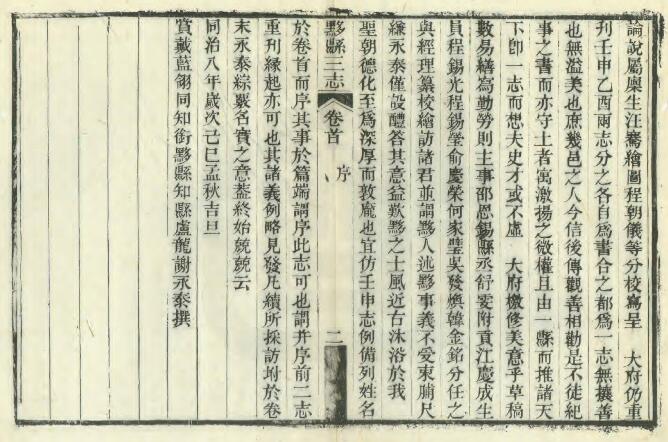 論說屬廩生汪騫繪圖程朝儀等分校寫呈　大府仍重
刊壬申乙酉兩志分之各自爲書合之都爲一志無攘善
也無溢美也庶幾邑之人今信後傳觀善相勸是不徒紀
事之書而亦守土者寓激揚之微權且由一縣而推諸天
下卽一志而想夫史才或不虛　大府檄修美意乎草稿
數易繕寫勤勞則主事邵恩錫縣丞舒雯附貢江慶成生
員程錫光程錫瑩俞慶榮何家璧吳發燠韓金銘分任之
與經理纂校繪訪諸君並謂黟人述黟事義不受束脯尺
縑永泰僅設醴答其意益歎黟之士風近古沐浴於我
聖朝德化至爲深厚而敦龐也宜仿壬申志例備列姓名
黟縣三志
卷首
序
二
於卷首而序其事於篇端謂序此志可也謂并序前二志
重刊緣起亦可也其諸義例略見發凡續所採訪坿於卷
末永泰綜覈名實之意蓋終始兢兢云
同治八年歲次己巳孟秋吉旦
賞戴藍翎同知銜黟縣知縣盧龍謝永泰撰